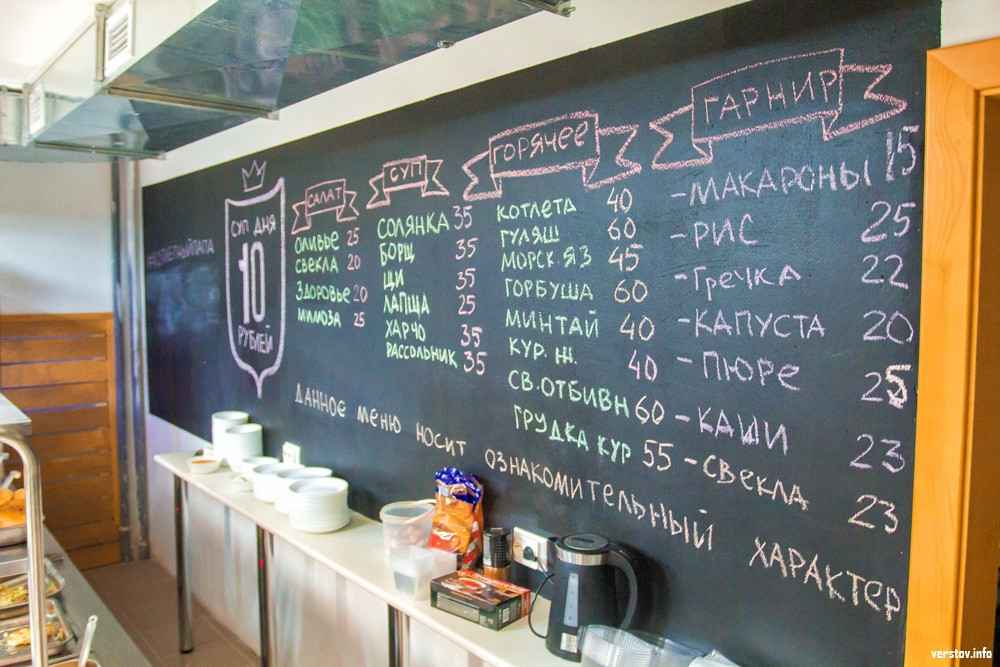 СУП ДНЯ
10
РУБЛЕЙ
САЛАТ
ОЛИВЬЕ 25
СВЕКЛА 20
ЗДОРОВЬЕ 20
МИМОЗА 25
СУП
СОЛЯНКА 35
БОРЩ 35
ЩИ 35
ЛАПША 25
ХАРЧО 35
РАССОЛЬНИК 35
ГОРЯЧЕЕ
КОТЛЕТА 40
ГУЛЯШ 60
МОРСК. ЯЗ 45
ГОРБУША 60
МИНТАЙ 40
КУР. Ж. 40
СВ. ОТБИВН 60
ГРУДКА КУР 55
ГАРНИР
-МАКАРОНЫ 15
-РИС 25
-Гречка 22
-КАПУСТА 20
-ПЮРЕ 25
-КАШИ 23
-СВЕКЛА 23
ДАННОЕ МЕНЮ НОСИТ ОЗНАКОМИТЕЛЬНЫЙ ХАРАКТЕР
verstov.info